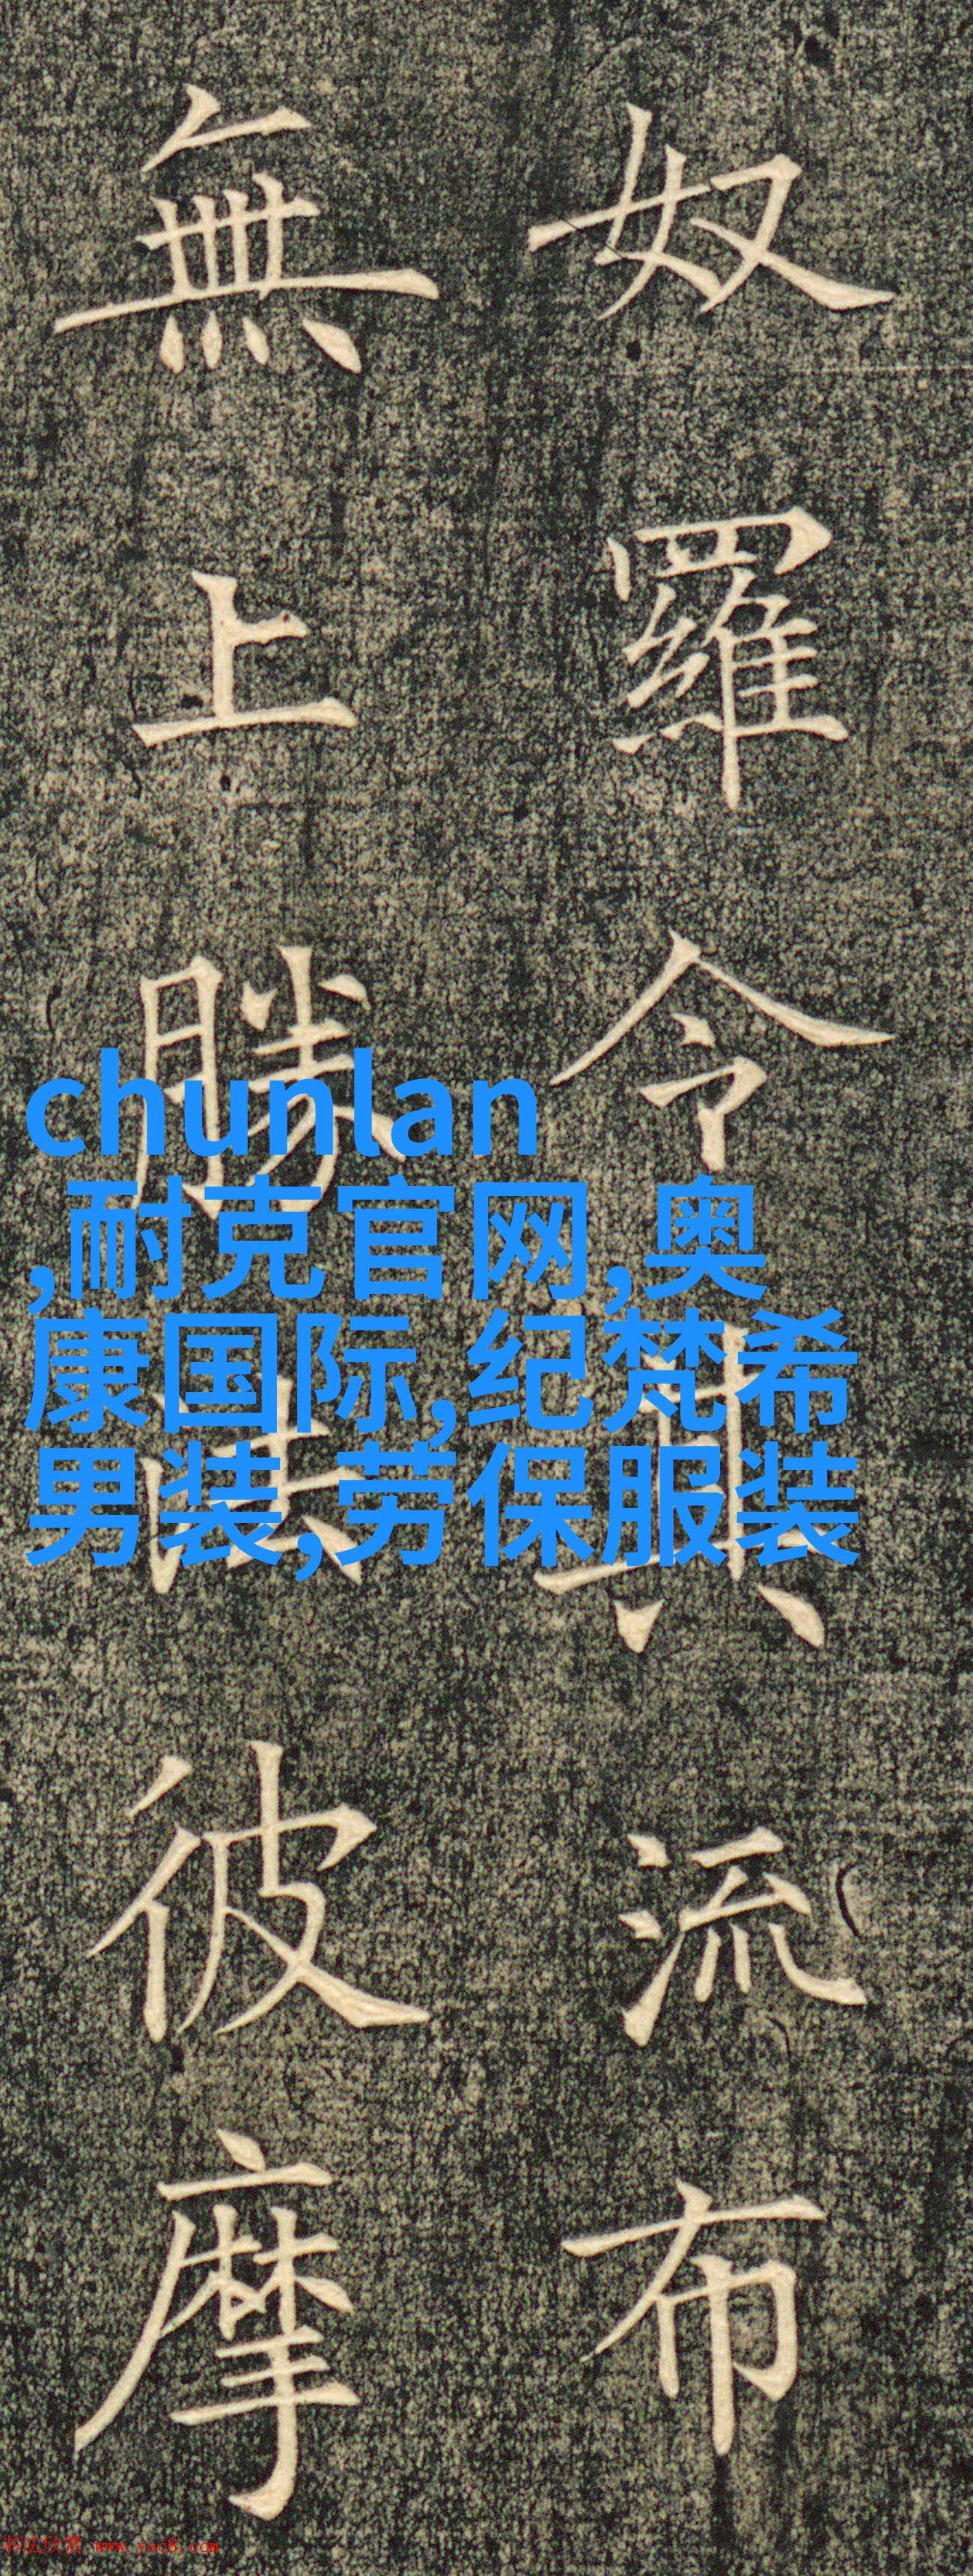 奴羅令其流布
無上勝法彼摩
chunlan
,耐克官网,奥
康国际,纪梵希
男装,劳保服装
书法欣赏 www.yac8.com